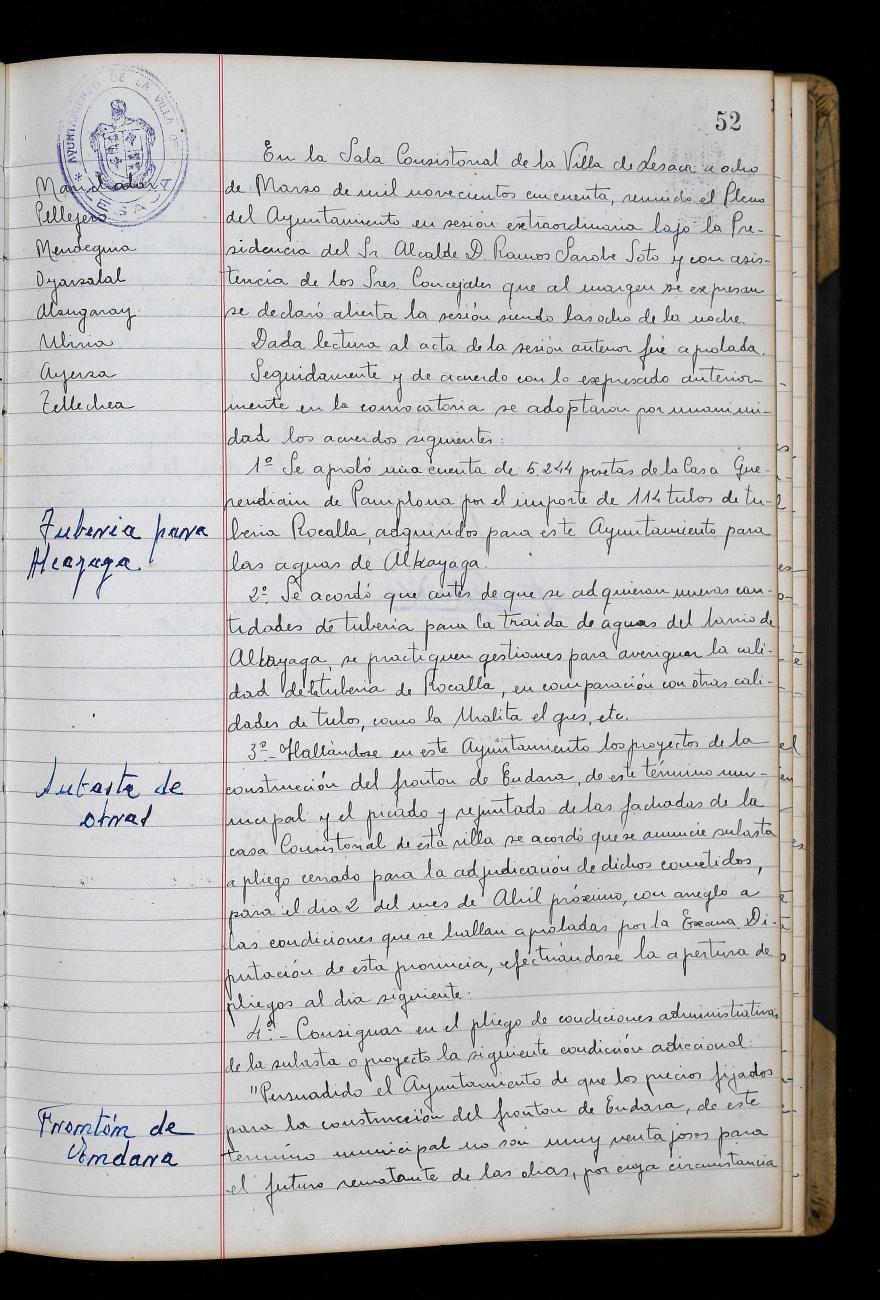 52
AYUNTAMIENTO DE LA VILLA DE LESACA
Marichalar
Pellejero
Mendeguia
Oyarzabal
Alzugaray
Ubiria
Ayerza
Tellechea
En la Sala Consistorial de la Villa de Lesaca a ocho
de Marzo de mil novecientos cincuenta, reunido el Pleno
del Ayuntamiento en sesión extraordinaria bajo la Pre-
sidencia del Sr. Alcalde D. Ramos Sarobe Soto y con asis-
tencia de los Sres. Concejales que al margen se expresan
se declaró abierta la sesión siendo las ocho de la noche.
Dada lectura al acta de la sesión anterior fué aprobada.
Seguidamente y de acuerdo con lo expresado anterior-
mente en la convocatoria se adoptaron por unanimi-
dad los acuerdos siguientes:
1º Se aprobó una cuenta de 5.244 pesetas de la Casa Gue-
rendiain de Pamplona por el importe de 114 tubos de tu-
beria Rocalla, adquiridos para este Ayuntamiento para
las aguas de Alkayaga.
Tuberia para
Alcayaga.
2º. Se acordó que antes de que se adquieran nuevas can-
tidades de tuberia para la traida de aguas del barrio de
Alkayaga, se practiquen gestiones para averiguar la cali-
dad de tuberia de Rocalla, en comparación con otras cali-
dades de tubos, como la Uralita el gres, etc.
3º.- Hallándose en este Ayuntamiento los proyectos de la
construcción del fronton de Endara, de este término mu-
nicipal y el picado y rejuntado de las fachadas de la
casa Consistorial de esta villa se acordó que se anuncie subasta
a pliego cerrado para la adjudicación de dichos cometidos,
para el dia 2 del mes de Abril próximo, con arreglo a
las condiciones que se hallan aprobadas por la Excma. Di-
putación de esta provincia, efectuándose la apertura de
pliegos al dia siguiente.
Subasta de
obras
4º.- Consignar en el pliego de condiciones administrativas
de la subasta o proyecto la siguiente condición adiccional:
"Persuadido el Ayuntamiento de que los precios fijados
para la construcción del fronton de Endara, de este
término municipal no son muy ventajosos para
el futuro rematante de las obras, por cuya circunstancia
Frontón de
Endara